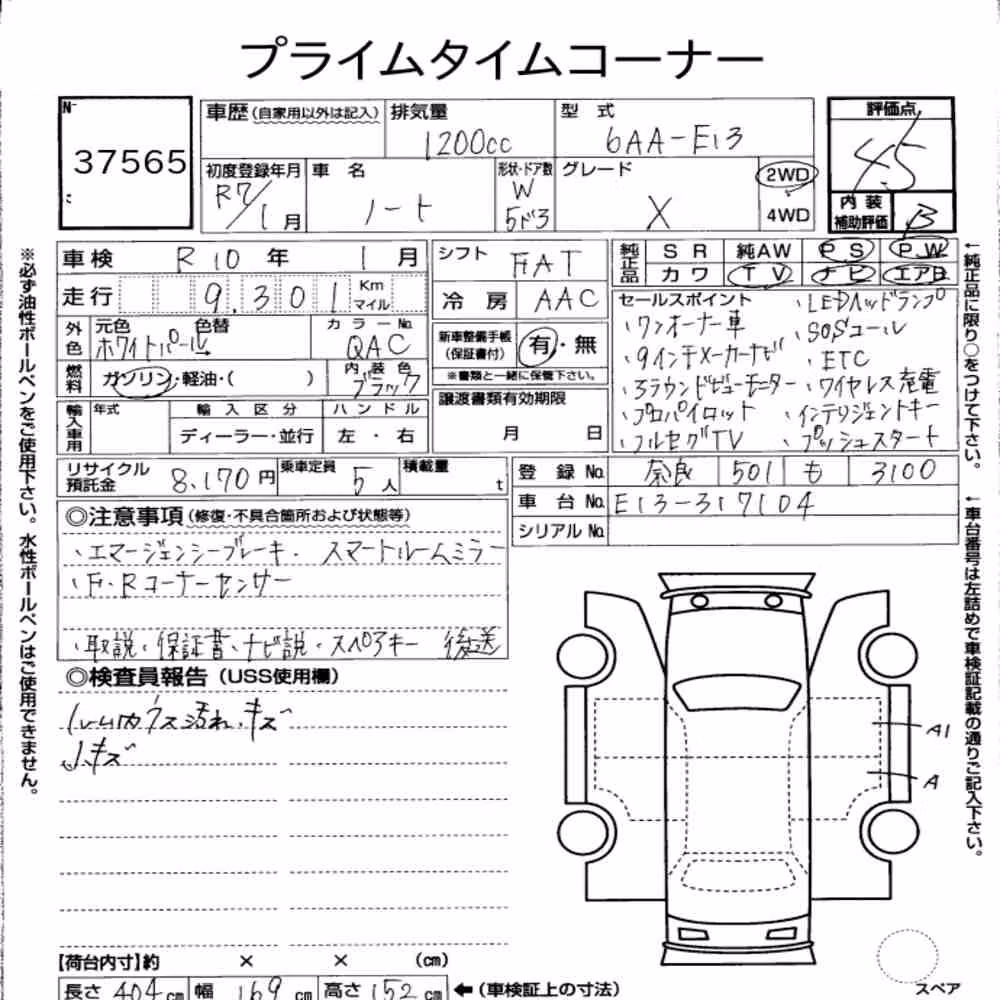 プライムタイムコーナー
No. 37565
車歴(自家用以外は記入) 排気量 1200cc 型式 6AA-E13 評価点 4.5
初度登録年月 R7/1月 車名 ノート 形状・ドア数 W 5ドア グレード X 2WD 4WD
内装補助評価 B
車検 R10年 1月 シフト FAT 純正品 SR 純AW PS PW
カワ TV ナビ エアB
走行 9,301 Km マイル 冷房 AAC
外色 元色 ホワイトパール 色替 カラーNo. QAC
新車整備手帳(保証書付) 有・無
※書類と一緒に保管下さい。
燃料 ガソリン・軽油・( ) 内装色 ブラック
輸入車用 年式 輸入区分 ディーラー・並行 ハンドル 左・右
譲渡書類有効期限 月 日
セールスポイント
・ワンオーナー車
・9インチメーカーナビ
・3ラウンドビューモニター
・プロパイロット
・フルセグTV
・LEDヘッドランプ
・SOSコール
・ETC
・ワイヤレス充電
・インテリジェントキー
・プッシュスタート
リサイクル預託金 8,170円 乗車定員 5人 積載量 t
登録No. 奈良 501 も 3100
車台No. E13-317104
シリアルNo.
◎注意事項(修復・不具合箇所および状態等)
・エマージェンシーブレーキ・スマートルームミラー
・F・Rコーナーセンサー
・取説・保証書・ナビ説・スペアキー 後送
◎検査員報告(USS使用欄)
ルーム内ウス汚れ・キズ
小キズ
A1
A
スペア
【荷台内寸】約 × × (cm)
長さ 404cm 幅 169cm 高さ 152cm ←(車検証上の寸法)
※必ず油性ボールペンをご使用下さい。水性ボールペンはご使用できません。
←純正品に限り○をつけて下さい。
←車台番号は左詰めで車検証記載の通りご記入下さい。